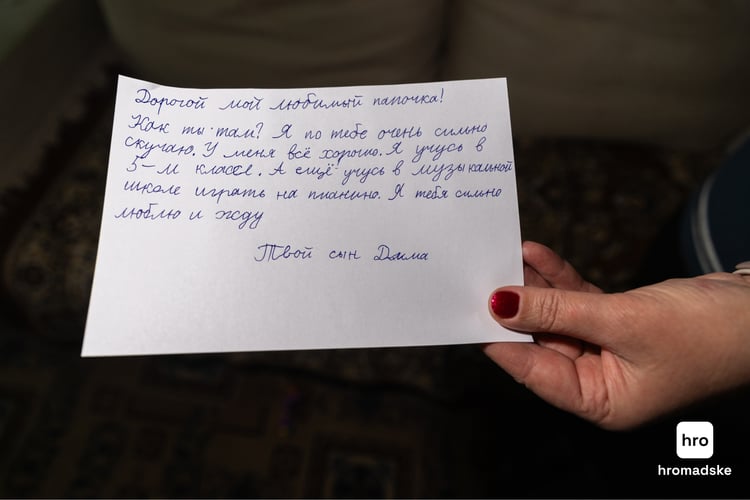 Дорогой мой любимый папочка!
Как ты там? Я по тебе очень сильно
скучаю. У меня всё хорошо. Я учусь в
5-м классе. А ещё учусь в музыкальной
школе играть на пианино. Я тебя сильно
люблю и жду
Твой сын Дима
hro
hromadske